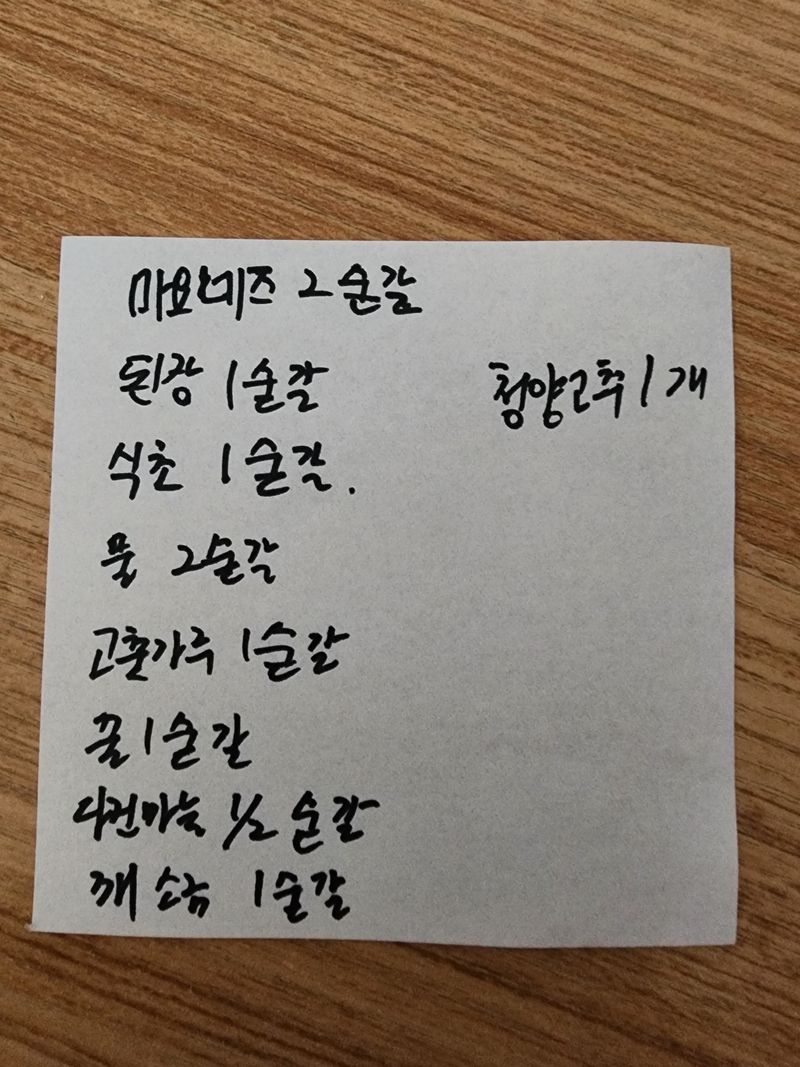 마요네즈 2순갈
된장 1순갈
청양고추 1개
식초 1순갈.
물 2순갈
고춘가루 1순갈
꿀 1순갈
다진마늘 1/2 순갈
깨소금 1순갈